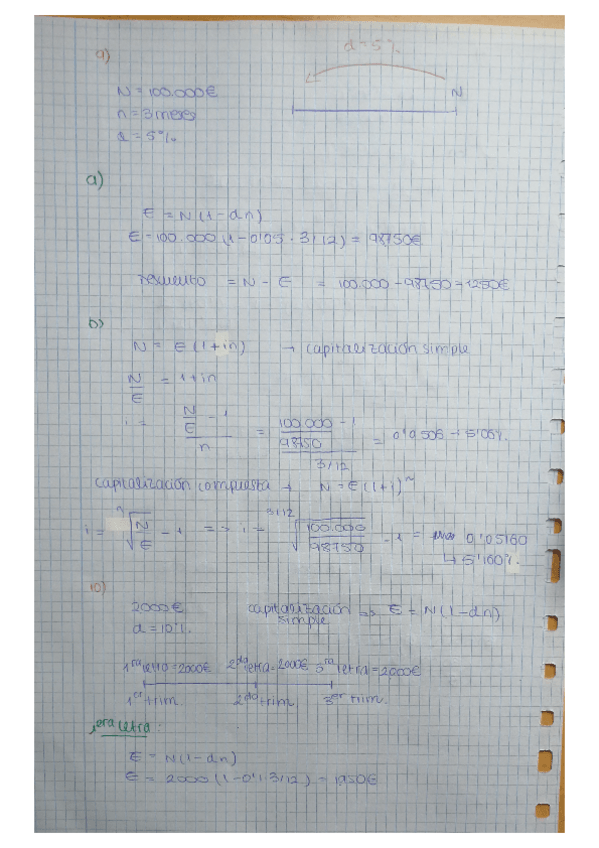 9)
d = 5%
N = 100.000€
N
n = 3 meses
d = 5%
a)
E = N (1 - dn)
E = 100.000 (1 - 0'05 · 3/12) = 98750€
= N - E = 100.000 - 98750 = 1250€
b)
N = E (1 + in) → capitalización simple
N/E = 1 + in
i = (N/E - 1)/n = (100.000/98750 - 1)/(3/12) = 0'0506 → 5'06%
capitalización compuesta → N = E (1+i)^n
i = ⁿ√(N/E) - 1 => i = ^(3/12)√(100.000/98750) - 1 = 0'05160
↳ 5'160%
10)
2000€ capitalización simple E = N (1 - dn)
d = 10%
1ra letra = 2000€ 2da letra = 2000€ 3ra letra = 2000€
1er trim. 2do trim. 3er trim.
1era letra:
E = N (1 - dn)
E = 2000 (1 - 0'1 · 3/12) = 1950€